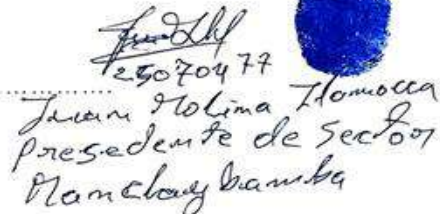 25070477
Juan Molima Llamocca
Presedente de Sector
Manchaybamba